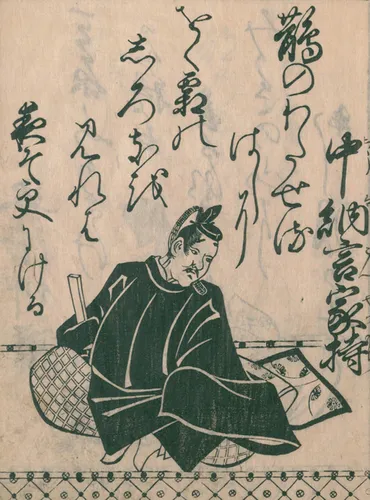 中納言家持
鵲のわたせる
はしに
をく霜の
しろきを
見れは
夜そ更にける